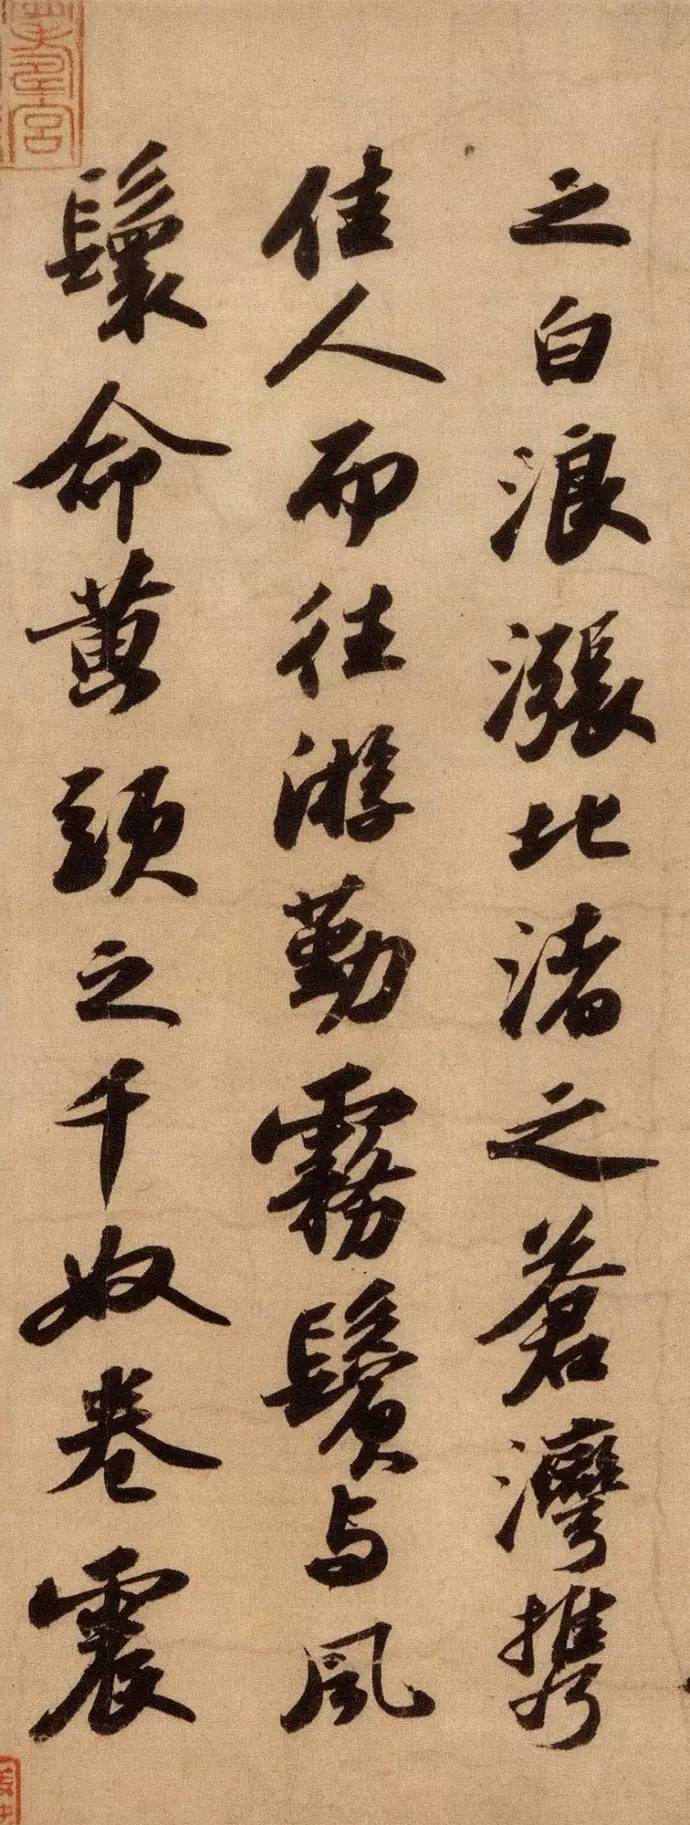 之白浪漲北渚之蒼灣攜
佳人而往游勤霧鬢与風
鬟命黃頭之千奴卷震